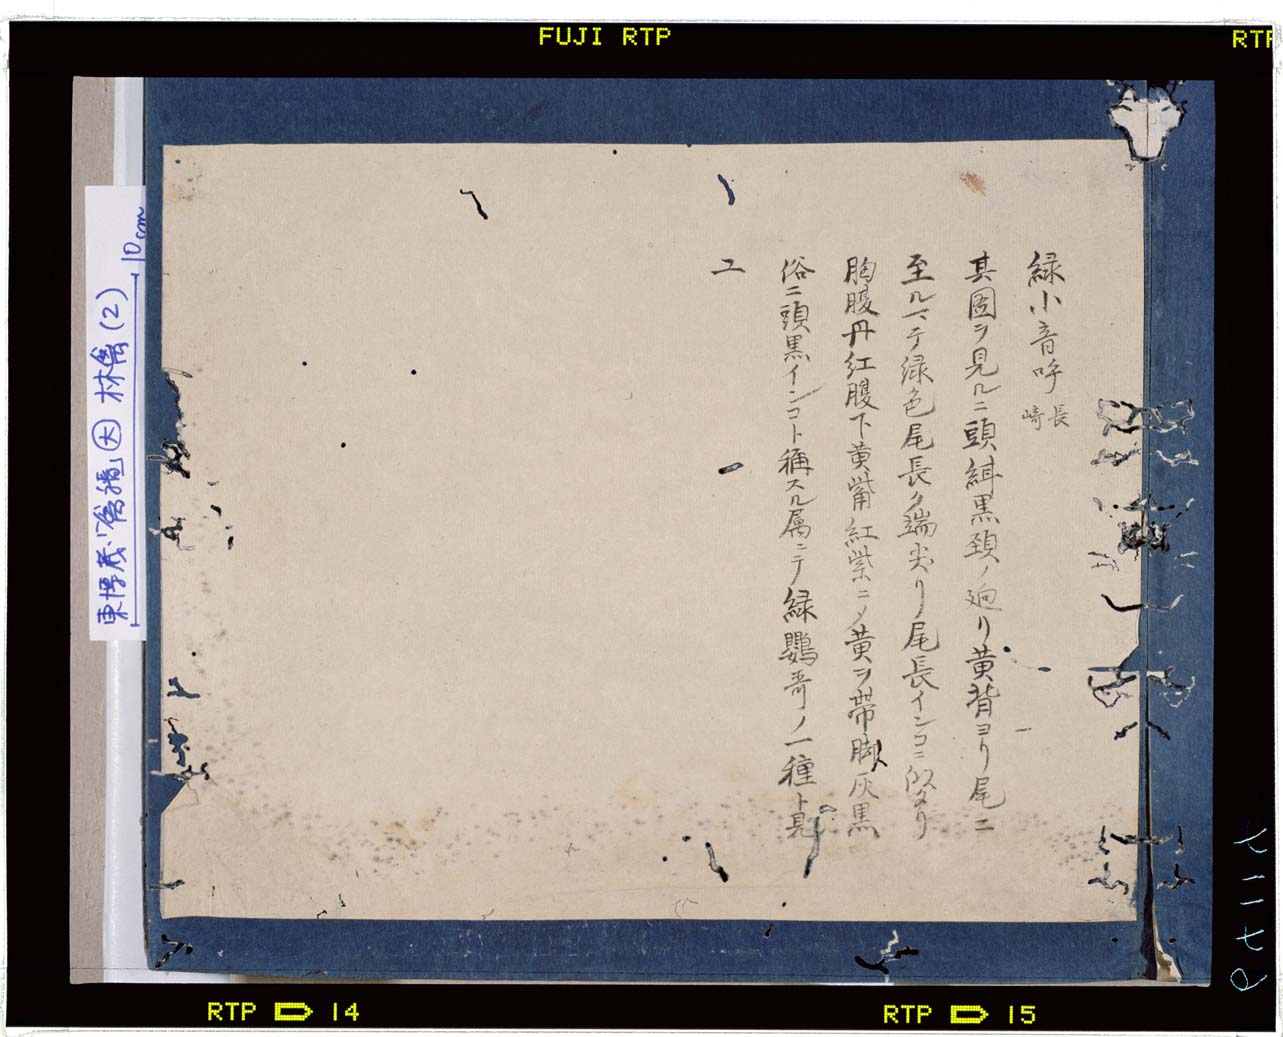 FUJI RTP
RTP
緑小音呼 長崎
其圖ヲ見ルニ頭緋黒頚ノ廻リ黄背ヨリ尾ニ
至ルマテ緑色尾長ク端尖リ尾長インコニ似タリ
胸腹丹紅腹下黄觜紅紫ニメ黄ヲ帯脚灰黒
俗ニ頭黒インコト稱スル属ニテ緑鸚哥ノ一種ト見
ユ
東博蔵『禽譜』大 林禽(2)
10cm
RTP 14
RTP 15